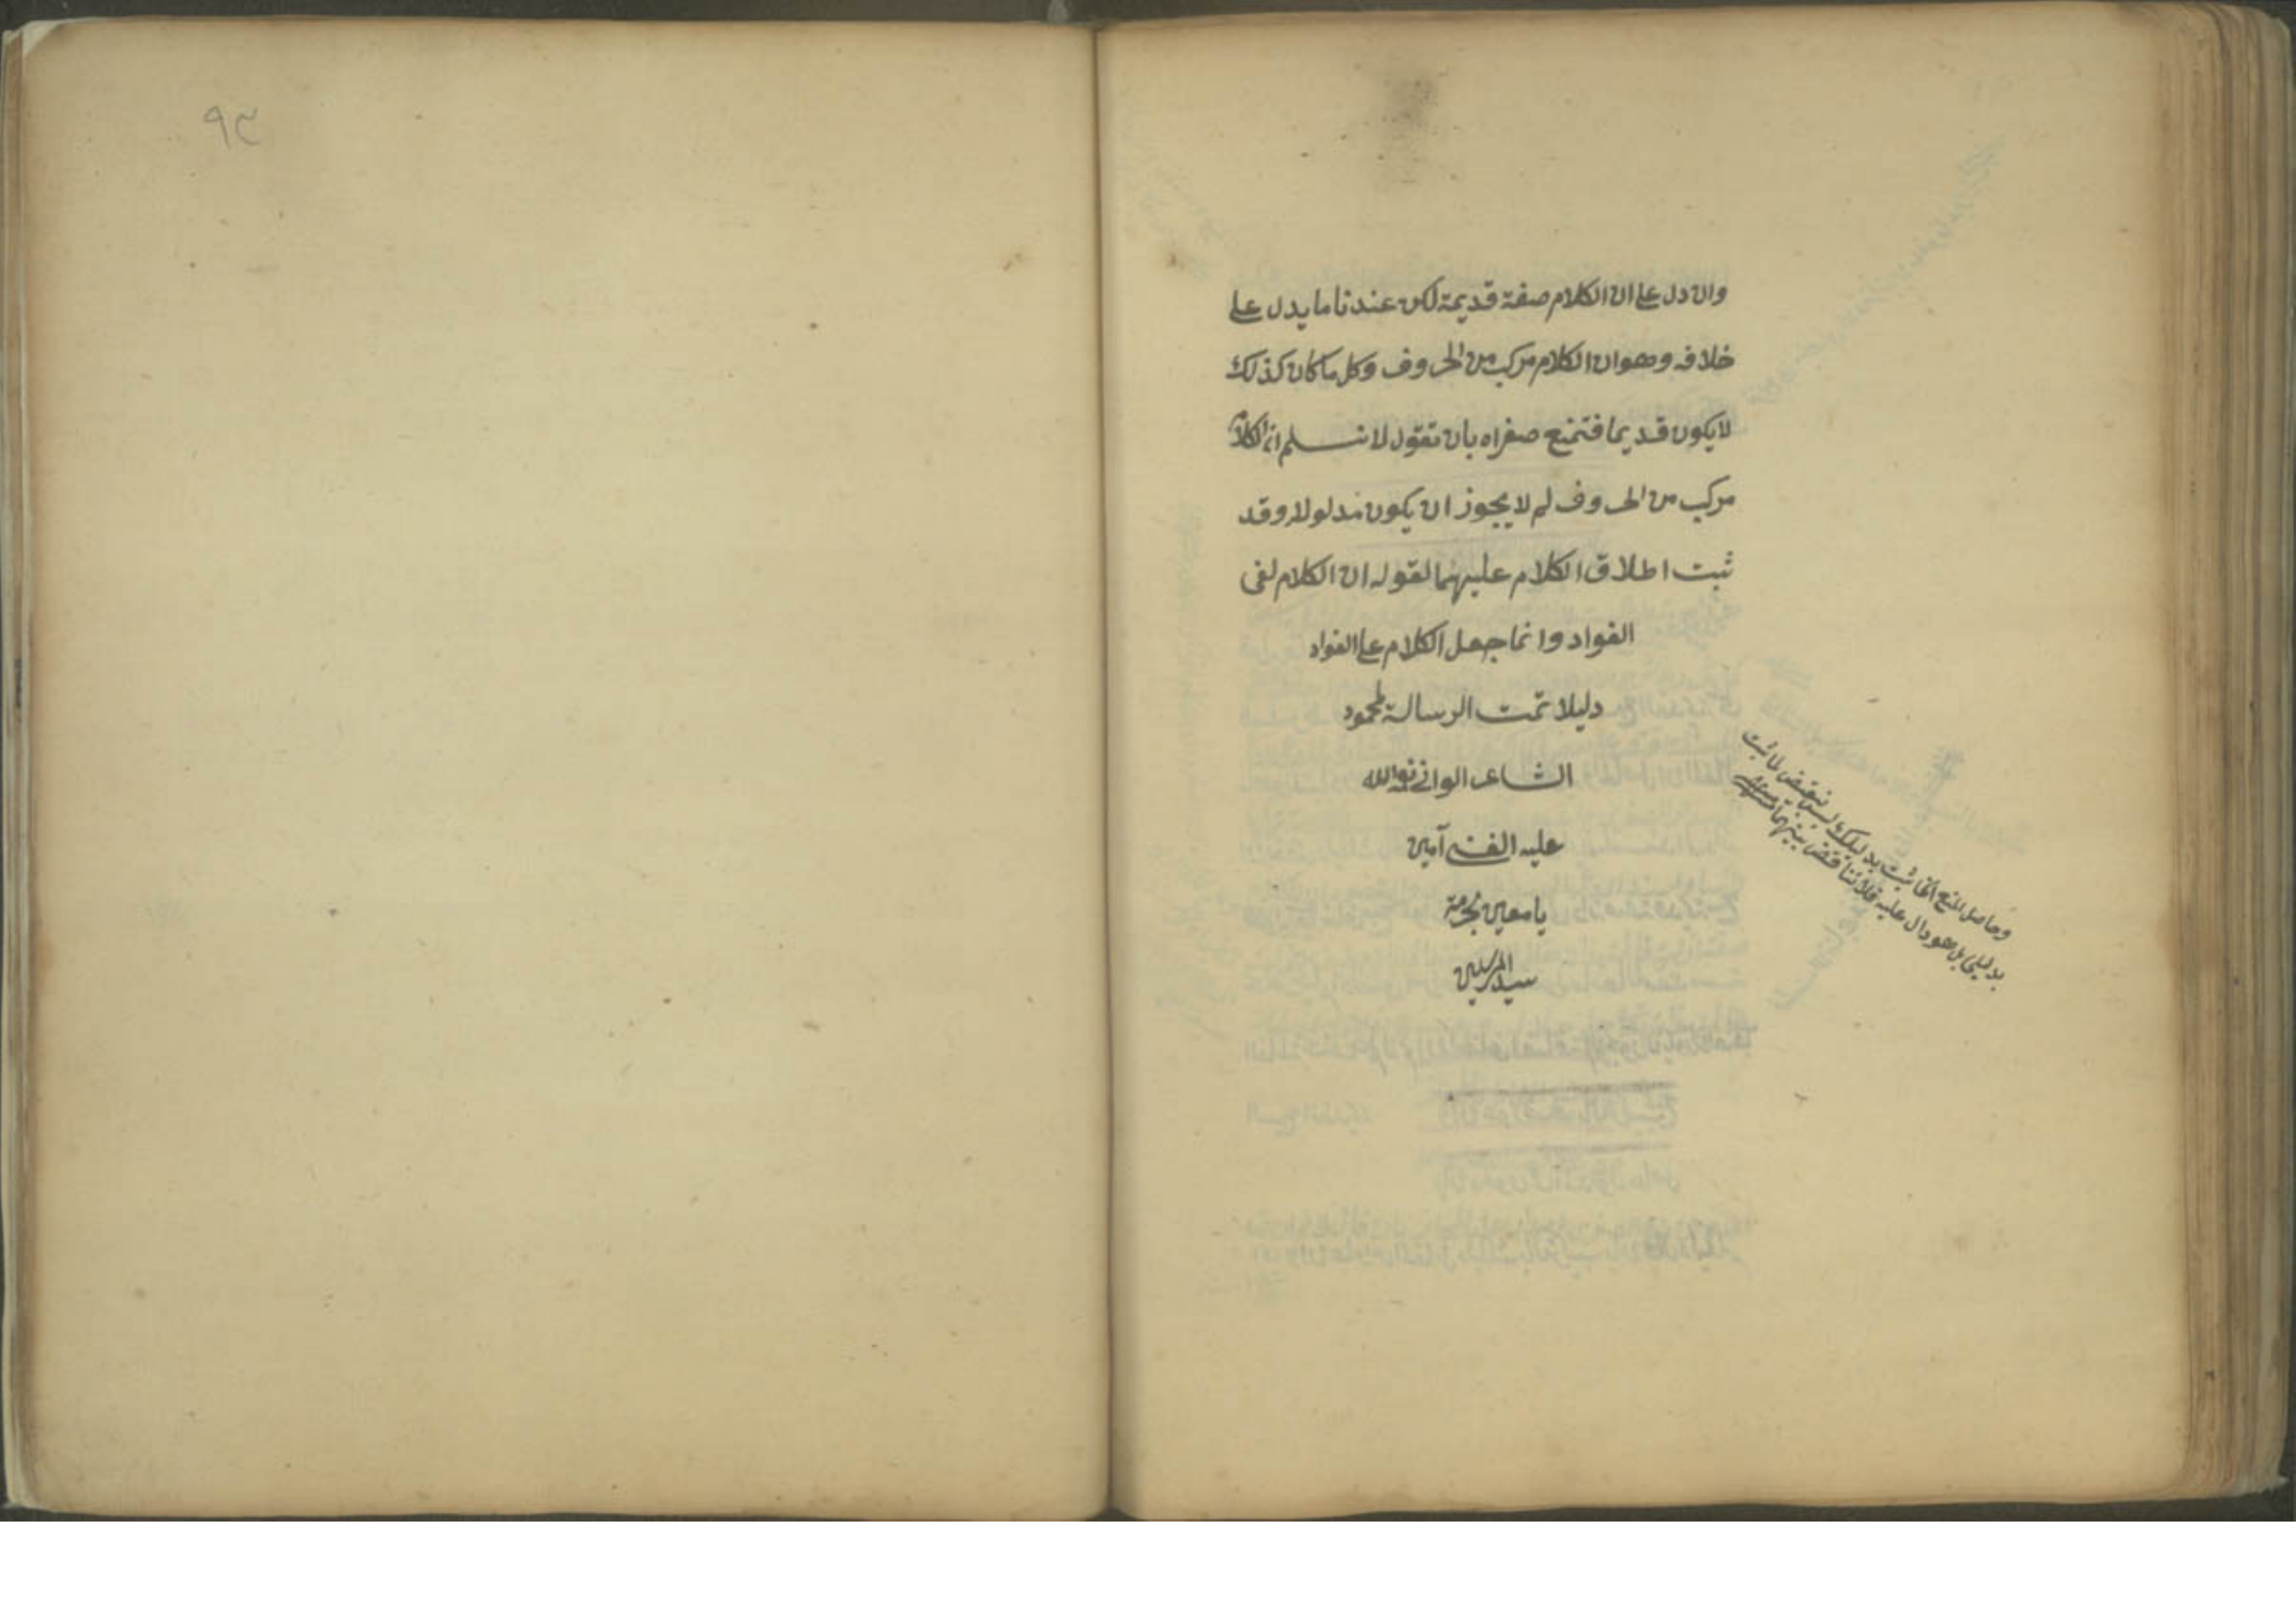 وان دل على ان الكلام صفة قديمة لكن عندنا ما يدل على
خلافه وهو ان الكلام مركب من الحروف وكل ما كان كذلك
لا يكون قديما فتمنع صغراه بان تقول لا نسلم ان الكلام
مركب من الحروف لم لا يجوز ان يكون مدلولا وقد
ثبت اطلاق الكلام عليهما لقوله ان الكلام لفى
الفواد وانما جعل الكلام على الفواد
دليلا تمت الرسالة لمحمود
الشاعر الله
عليه آمين
يا معين بحرمة
سيد المرسلين
وحاصل المنع ان ما ثبت بدليلك ليس نقيض ما ثبت
بدليلي بل هو دال عليه فلا تناقض بينهما
٩٢